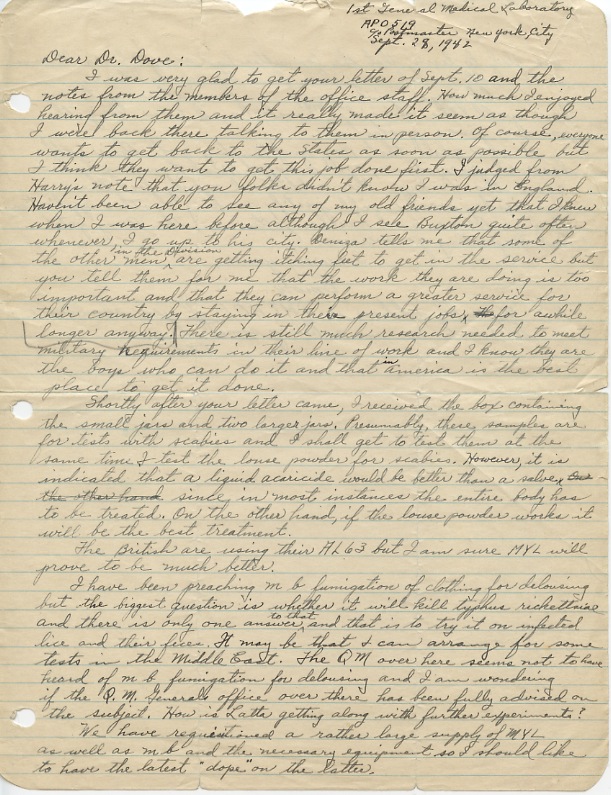 1st General Medical Laboratory
APO 519
% Postmaster New York City
Sept. 28, 1942
Dear Dr. Dove:
I was very glad to get your letter of Sept. 10 and the
notes from the members of the office staff. How much I enjoyed
hearing from them and it really made it seem as though
I were back there talking to them in person. Of course, everyone
wants to get back to the States as soon as possible but
I think they want to get this job done first. I judged from
Harry's note that you folks didn't know I was in England.
Haven't been able to see any of my old friends yet that I knew
when I was here before although I see Buxton quite often
whenever I go up to his city. Deniza tells me that some of
the other men in the Division are getting itching feet to get in the service but
you tell them for me that the work they are doing is too
important and that they can perform a greater service for
their country by staying in there present jobs, for awhile
longer anyway. There is still much research needed to meet
military requirements in their line of work and I know they are
the boys who can do it and that in America is the best
place to get it done.
Shortly after your letter came, I received the box containing
the small jars and two larger jars. Presumably, these samples are
for tests with scabies and I shall get to test them at the
same time I test the louse powder for scabies. However, it is
indicated that a liquid acaricide would be better than a salve, On
the other hand since, in most instances the entire body has
to be treated. On the other hand, if the louse powder works it
will be the best treatment.
The British are using their AL63 but I am sure MYL will
prove to be much better.
I have been preaching m b fumigation of clothing for delousing
but the biggest question is whether it will kill typhus rickettsiae
and there is only one answer to that and that is to try it on infected
lice and their feces. It may be that I can arrange for some
tests in the Middle East. The QM over here seems not to have
heard of m b fumigation for delousing and I am wondering
if the Q.M. General's office over there has been fully advised on
the subject. How is Latta getting along with further experiments?
We have requisitioned a rather large supply of MYL
as well as m b and the necessary equipment so I should like
to have the latest "dope" on the latter.